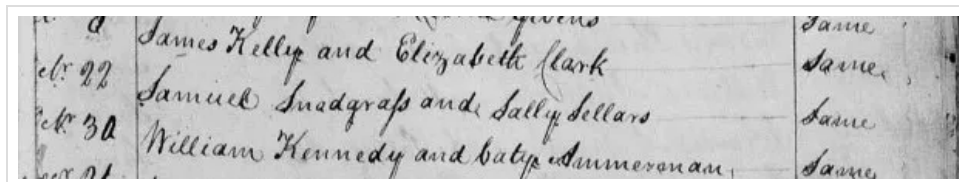 Givens Same
James Kelly and Elizabeth Clark Same
Nr 22 Samuel Snodgrass and Sally Sellars Same
Nr 30 William Kennedy and Caty Ammerman Same